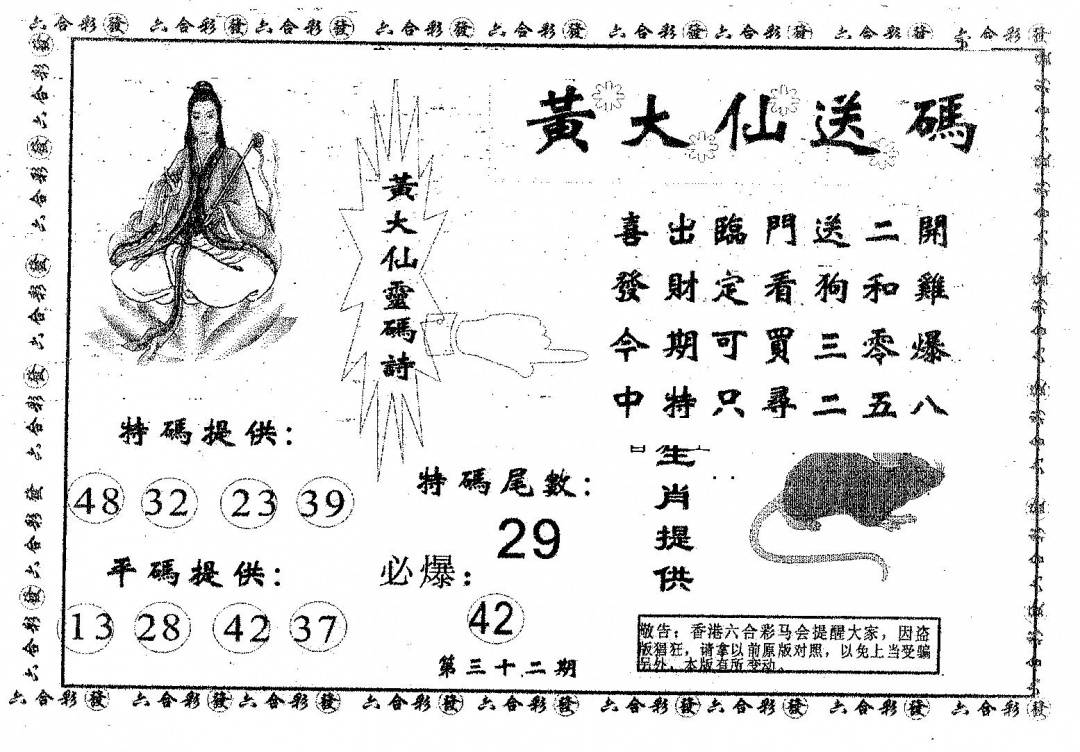 六合彩發 六合彩發 六合彩發 六合彩發 六合彩發 六合彩發 六合彩發 六合彩發 六合彩發
黃大仙送碼
黃大仙靈碼詩
喜出臨門送二開
發財定看狗和雞
今期可買三零爆
中特只尋二五八
特碼提供:
48 32 23 39
平碼提供:
13 28 42 37
特碼尾數:
29
必爆:
42
第三十二期
生肖提供
敬告：香港六合彩马会提醒大家，因盗
版猖狂，请拿以前原版对照，以免上当受骗
另外，本版有所变动。
六合彩發 六合彩發 六合彩發 六合彩發 六合彩發 六合彩發 六合彩發 六合彩發 六合彩發